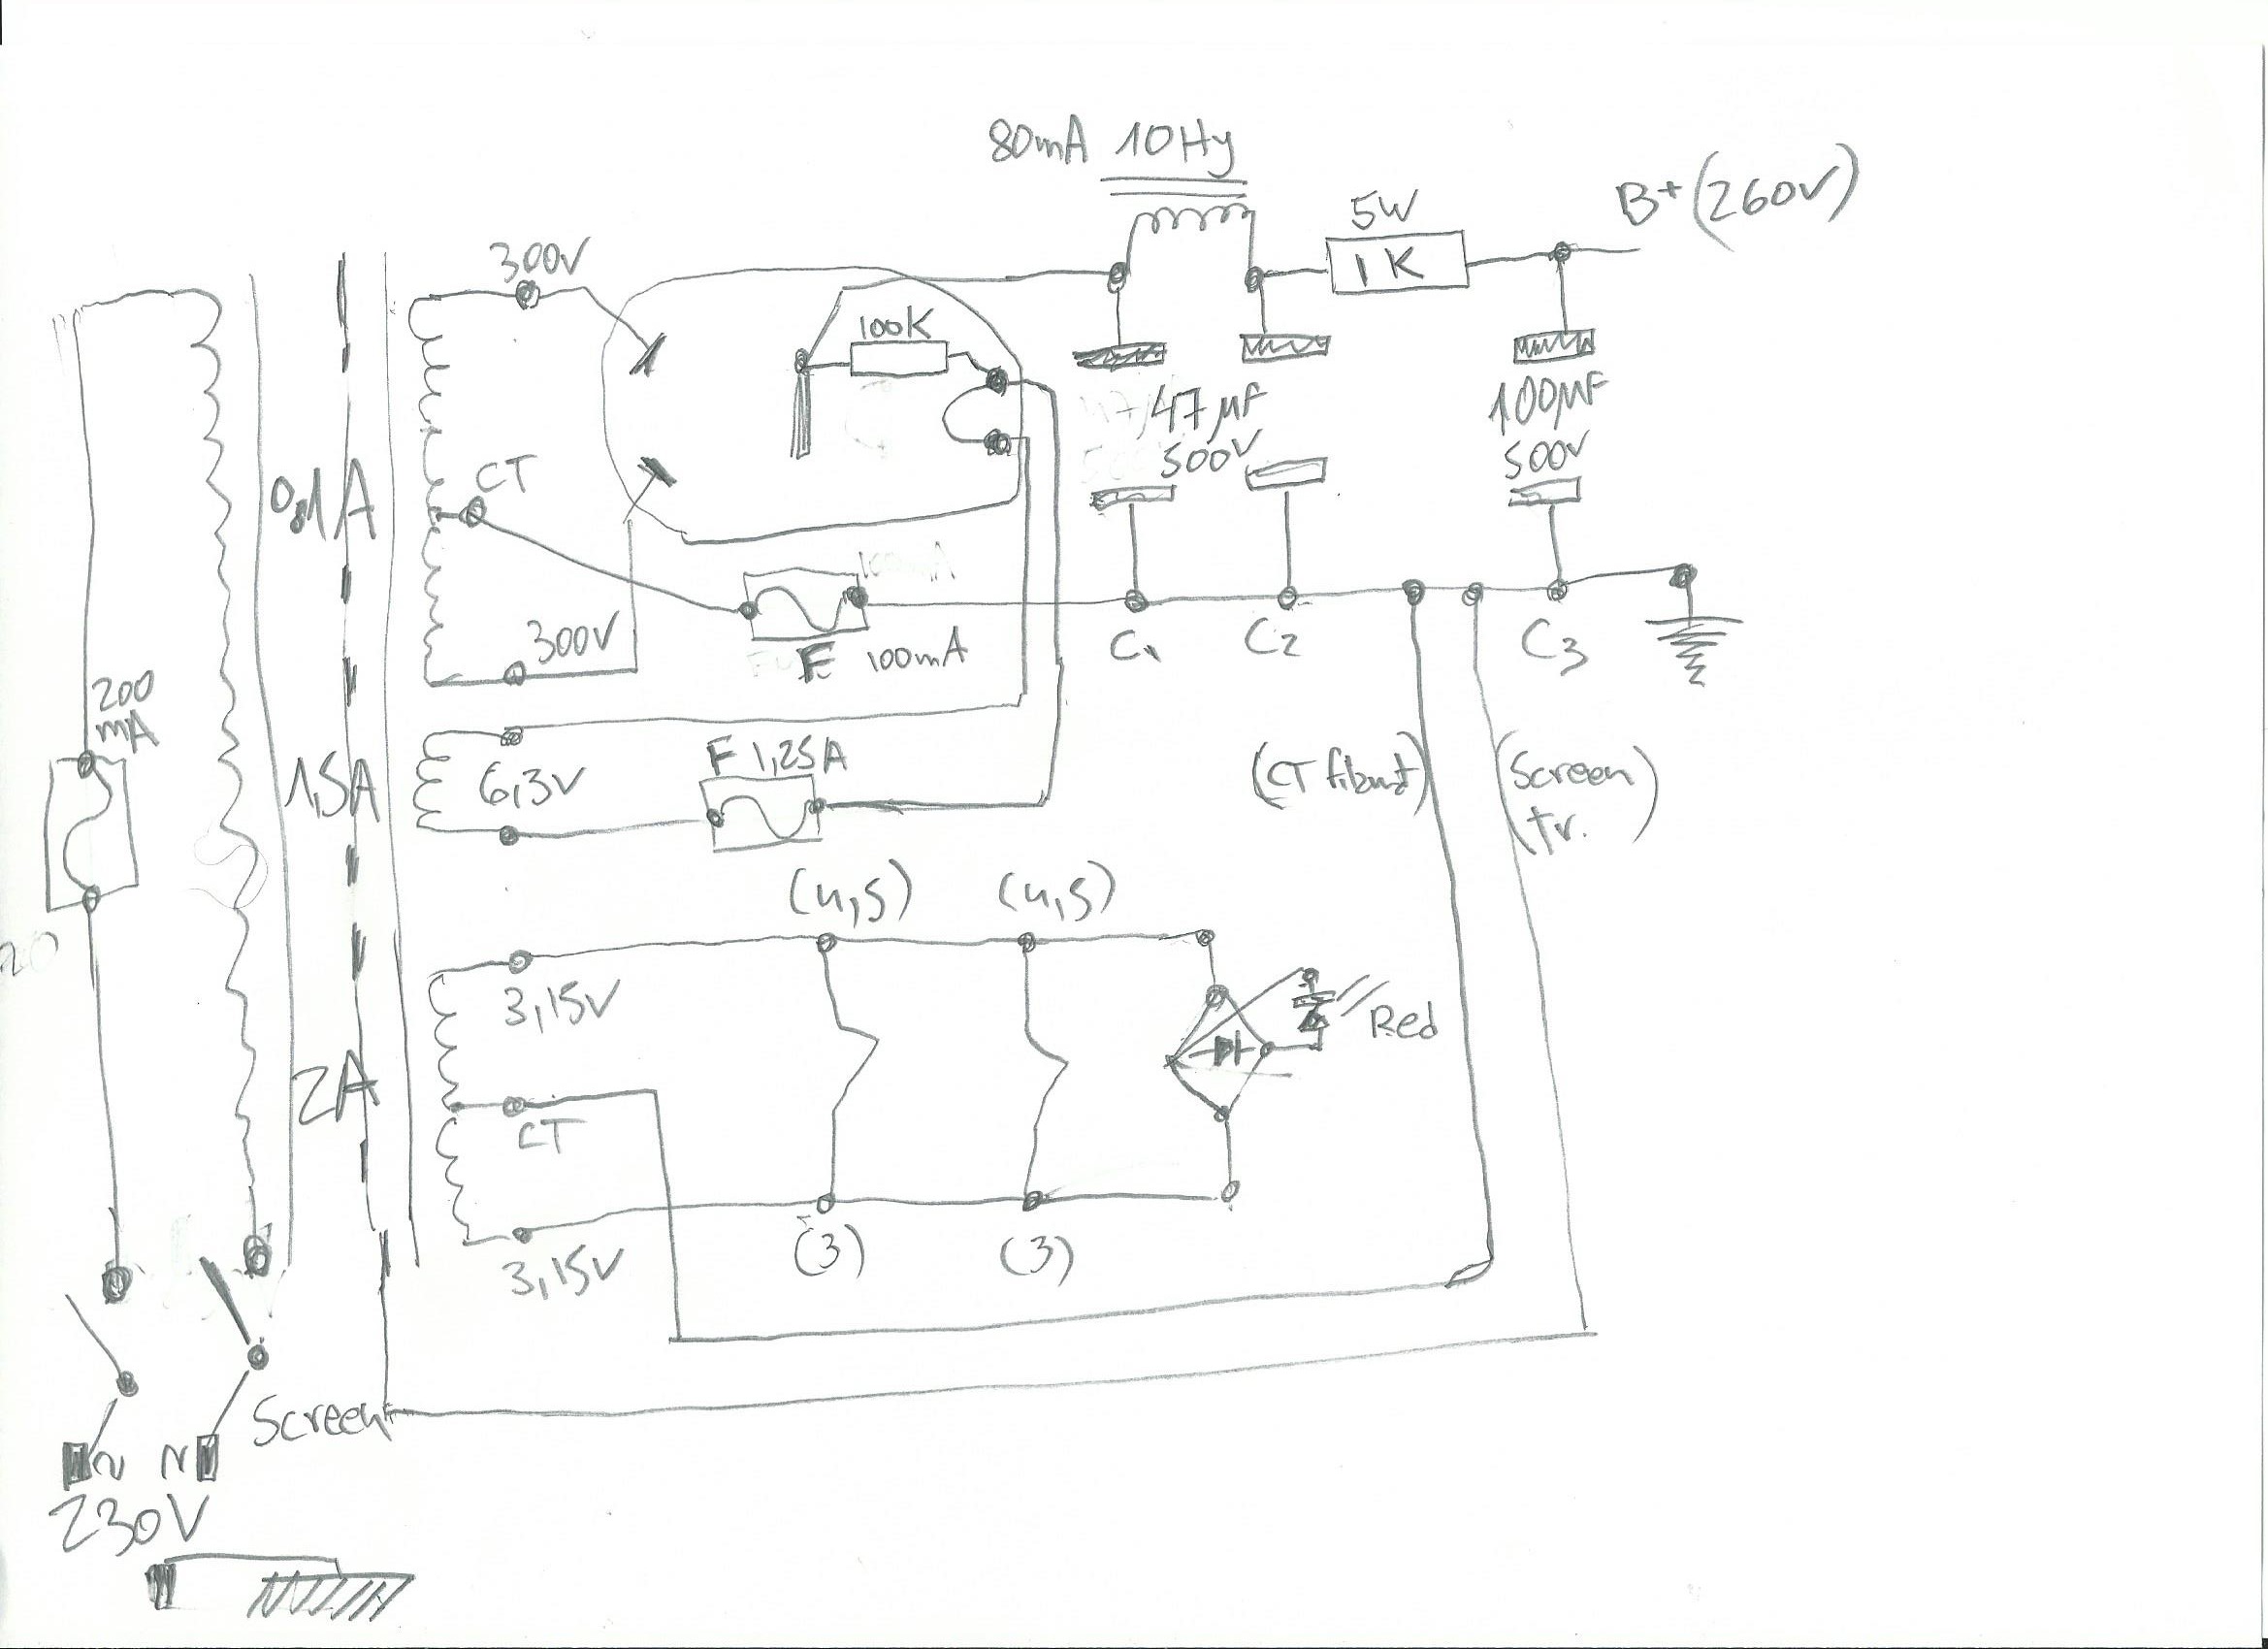 80mA 10Hy
B+(260V)
5W
1K
300V
100K
47µF
500V
100µF
500V
0,1A
CT
300V
F 100mA
C1
C2
C3
200
mA
1,5A
6,3V
F 1,25A
(Screen
tr.)
(4,5)
(4,5)
3,15V
Red
2A
CT
3,15V
(3)
(3)
Screen
~ ~
230V